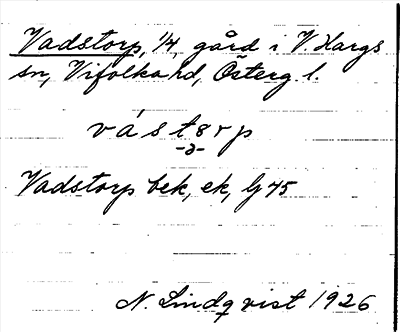 Vadstorp, 1/4, gård i V. Hargs
sn, Vifolka hd, Österg. l.
vástərp
-a-
Vadstorp bek, ek, lj 45
N. Lindqvist 1926